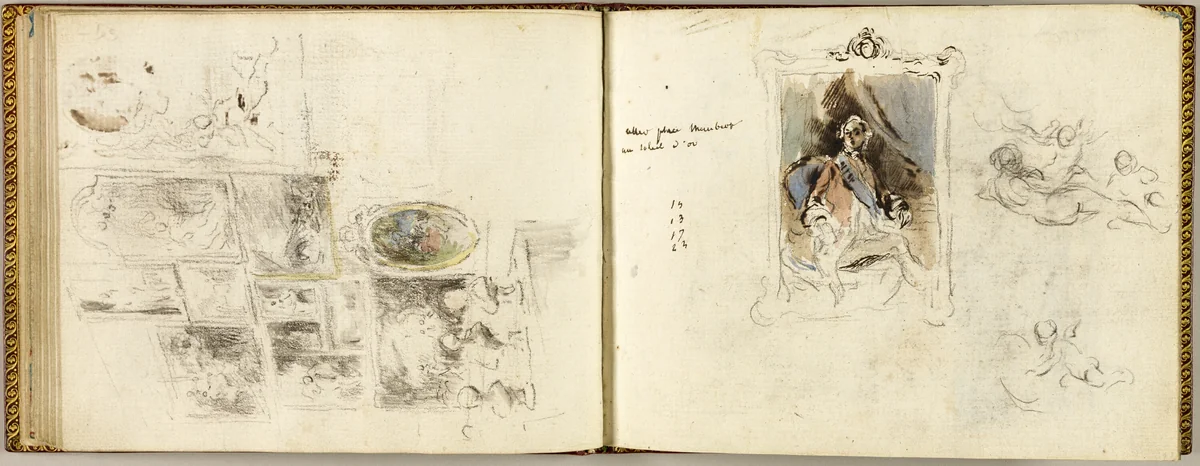 aller place Maubert
au soleil d'or
15
13
17
23